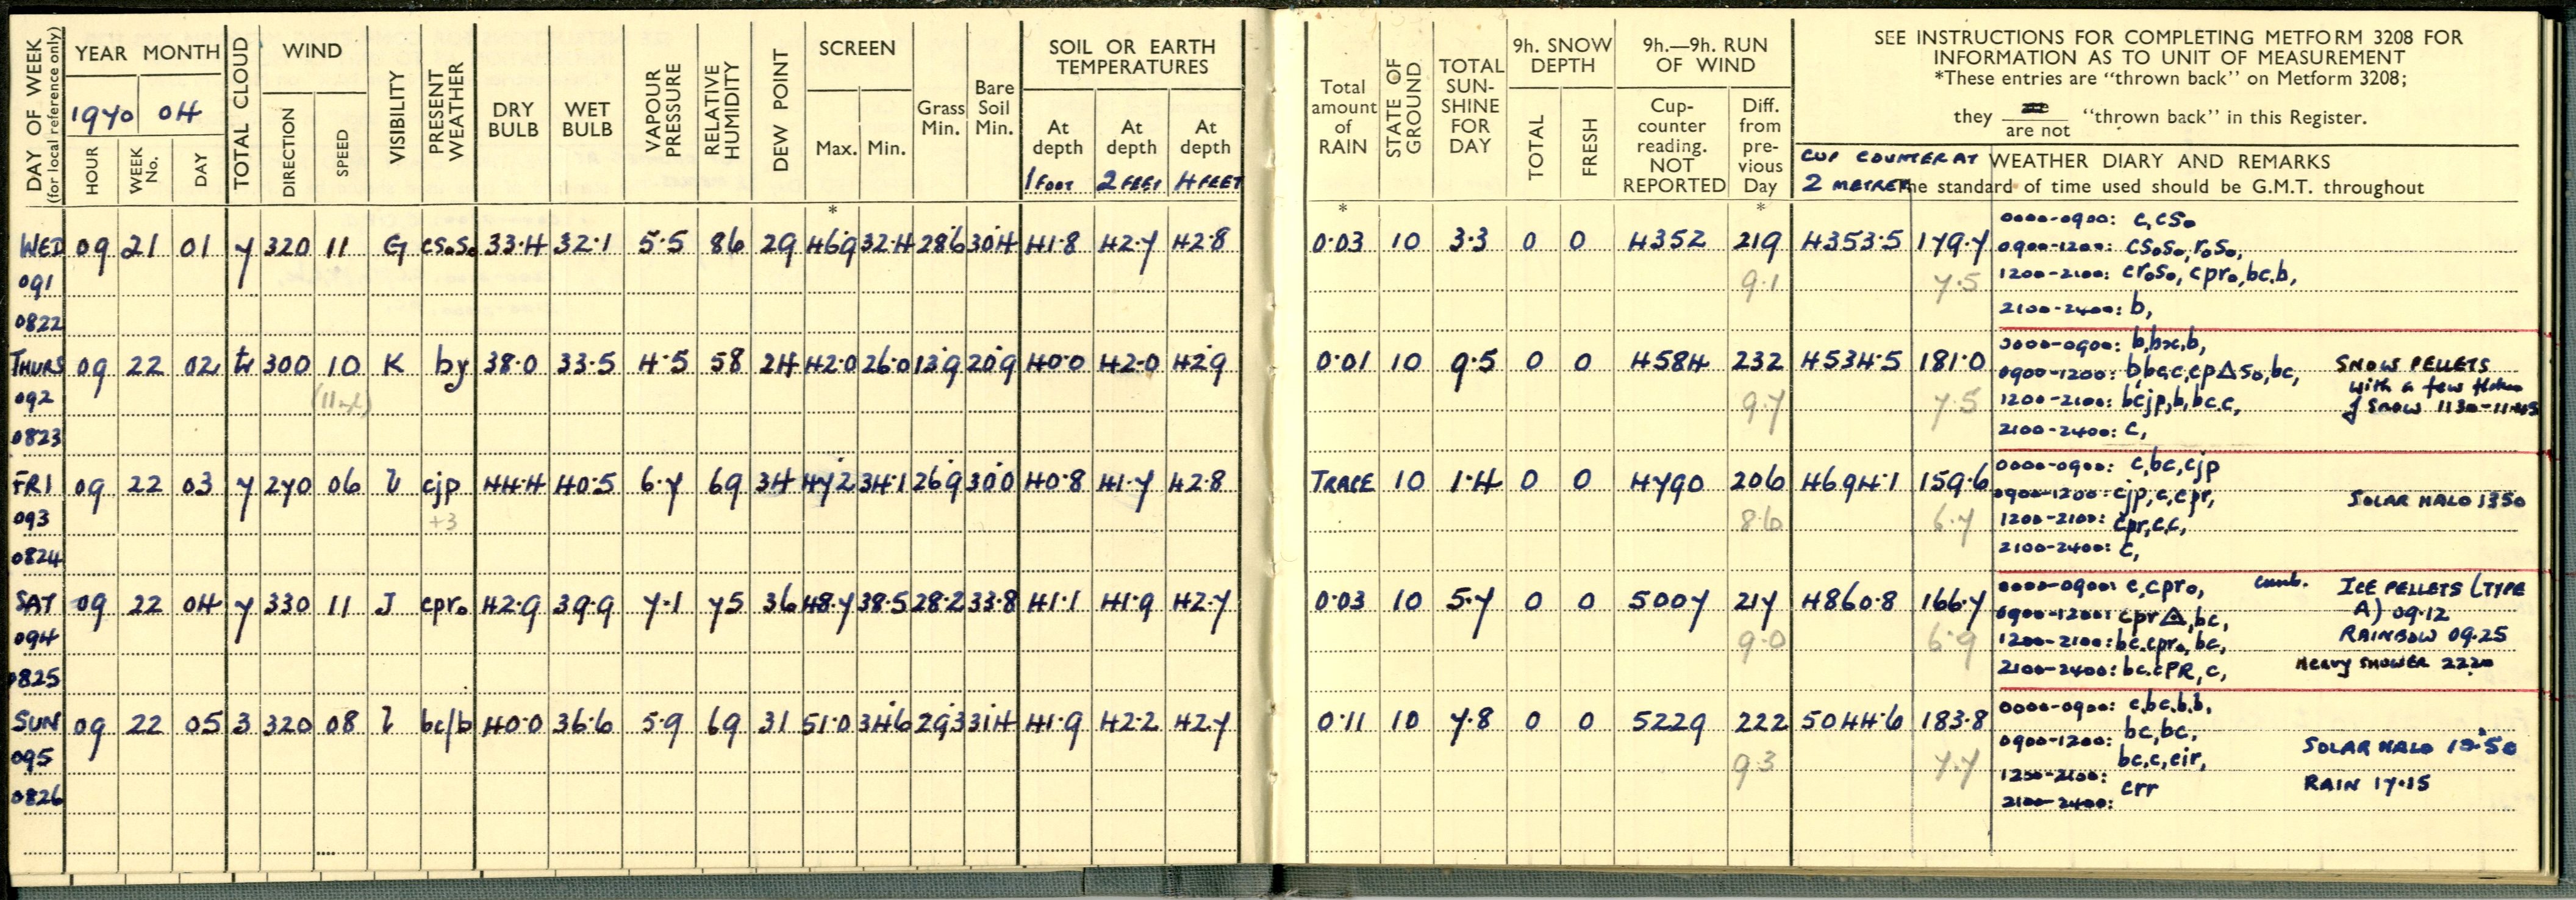 DAY OF WEEK
(for local reference only)
YEAR MONTH
1970 04
HOUR
WEEK No.
DAY
TOTAL CLOUD
WIND
DIRECTION
SPEED
VISIBILITY
PRESENT WEATHER
DRY BULB
WET BULB
VAPOUR PRESSURE
RELATIVE HUMIDITY
DEW POINT
SCREEN
Max. Min.
Grass Min.
Bare Soil Min.
SOIL OR EARTH TEMPERATURES
At depth At depth At depth
1 FOOT 2 FEET 4 FEET
Total amount of RAIN
STATE OF GROUND
TOTAL SUN-SHINE FOR DAY
9h. SNOW DEPTH
TOTAL FRESH
9h.—9h. RUN OF WIND
Cup-counter reading. NOT REPORTED
Diff. from pre-vious Day
SEE INSTRUCTIONS FOR COMPLETING METFORM 3208 FOR
INFORMATION AS TO UNIT OF MEASUREMENT
*These entries are “thrown back” on Metform 3208;
they are not “thrown back” in this Register.
CUP COUNTER AT WEATHER DIARY AND REMARKS
2 METRES The standard of time used should be G.M.T. throughout
* * *
WED 09 21 01 7 320 11 G cs₀s₀ 33·4 32·1 5·5 86 29 46·9 32·4 28·6 30·4 41·8 42·7 42·8 0·03 10 3·3 0 0 4352 219 4353·5 179·7
0000-0900: c,cs₀
0900-1200: cs₀s₀,r₀s₀,
091 9·1 7·5 1200-2100: cr₀s₀,cpr₀,bc.b,
0822 2100-2400: b,
THURS 09 22 02 tr 300 10 K by 38·0 33·5 4·5 58 24 42·0 26·0 13·9 20·9 40·0 42·0 42·9 0·01 10 9·5 0 0 4584 232 4534·5 181·0
0000-0900: b,bx,b,
0900-1200: b,bc,c,cp△s₀,bc, SNOW PELLETS
092 9·7 7·5 1200-2100: bcjp,b,bc.c, with a few flakes
of snow 1130-1145
0823 2100-2400: c,
FRI 09 22 03 7 270 06 cjp 44·4 40·5 6·7 69 34 47·2 34·1 26·9 30·0 40·8 41·7 42·8 TRACE 10 1·4 0 0 4790 206 4694·1 159·6
0000-0900: c,bc,cjp
0900-1200: cjp,c,cpr, SOLAR HALO 1350
093 +3 8·6 6·7 1200-2100: cpr,c.c,
0824 2100-2400: c,
SAT 09 22 04 7 330 11 J cpr₀ 42·9 39·9 7·1 75 36 48·7 38·5 28·2 33·8 41·1 41·9 42·7 0·03 10 5·7 0 0 5007 217 4860·8 166·7
0000-0900: c,cpr₀, ICE PELLETS (TYPE
0900-1200: cpr△,bc, A) 09·12
094 9·0 6·9 1200-2100: bc.cpr₀,bc, RAINBOW 09.25
0825 2100-2400: bc.cPR,c, HEAVY SHOWER 2220
SUN 09 22 05 3 320 08 bc/b 40·0 36·6 5·9 69 31 51·0 34·6 29·3 31·4 41·9 42·2 42·7 0·11 10 7·8 0 0 5229 222 5044·6 183·8
0000-0900: c,bc.b.b,
0900-1200: bc,bc, SOLAR HALO
095 9·3 7·7 1200-2100: bc,c,cir, RAIN 17·15
0826 2100-2400: crr